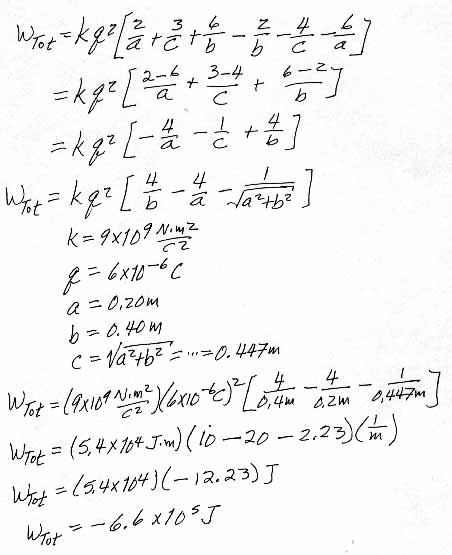 W_Tot = kq²[2/a + 3/c + 6/b − 2/b − 4/c − 6/a]
= kq²[(2−6)/a + (3−4)/c + (6−2)/b]
= kq²[−4/a − 1/c + 4/b]
W_Tot = kq²[4/b − 4/a − 1/√(a²+b²)]
k = 9×10⁹ N·m²/C²
q = 6×10⁻⁶ C
a = 0.20m
b = 0.40m
c = √(a²+b²) = ··· = 0.447m
W_Tot = (9×10⁹ N·m²/C²)(6×10⁻⁶C)²[4/0.4m − 4/0.2m − 1/0.447m]
W_Tot = (5.4×10⁴ J·m)(10 − 20 − 2.23)(1/m)
W_Tot = (5.4×10⁴)(−12.23) J
W_Tot = −6.6×10⁵ J